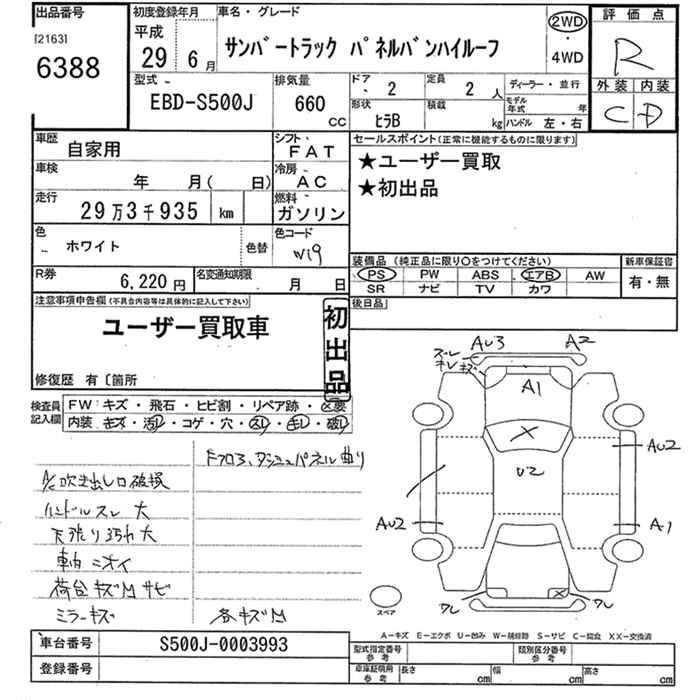 出品番号
[2163]
6388
初度登録年月
平成
29年 6月
車名・グレード
サンバートラック パネルバンハイルーフ
2WD
・
4WD
評価点
R
外装 内装
C D
型式
EBD-S500J
排気量
660
CC
ドア
2
定員
2 人
形状
ヒラB
積載
kg
ディーラー・並行
モデル年式 年
ハンドル 左・右
車歴
自家用
シフト
FAT
車検
年 月( 日)
冷房
AC
走行
29万3千935 km
燃料
ガソリン
色
ホワイト
色替
色コード
W19
R券
6,220円
名変通知期限
月 日
セールスポイント(正常に機能するものに限ります)
★ユーザー買取
★初出品
装備品 (純正品に限り〇をつけてください)
PS PW ABS エアB AW
SR ナビ TV カワ
新車保証書
有・無
注意事項申告欄(不具合内容等は具体的に記入して下さい)
ユーザー買取車
初出品
修復歴 有〔箇所
後日品
検査員
記入欄
FW キズ・飛石・ヒビ割・リペア跡・交要
内装 キズ・汚レ・コゲ・穴・スレ・キレ・破レ
Fフロア、ダッシュパネル曲り
A/C吹き出し口破損
ハンドルスレ大
天張り汚れ大
車内ニオイ
荷台キズMサビ
ミラーキズ
各キズM
AU3
A2
ズレ
キレ キズ
A1
X
U2
AU2
AU2
A1
X
ワレ
ワレ
スペア
A-キズ E-エクボ U-凹み W-補修跡 S-サビ C-腐食 XX-交換済
車台番号
S500J-0003993
登録番号
型式指定番号
参考
類別区分番号
参考
車庫証明用
参考
長さ cm
幅 cm
高さ cm